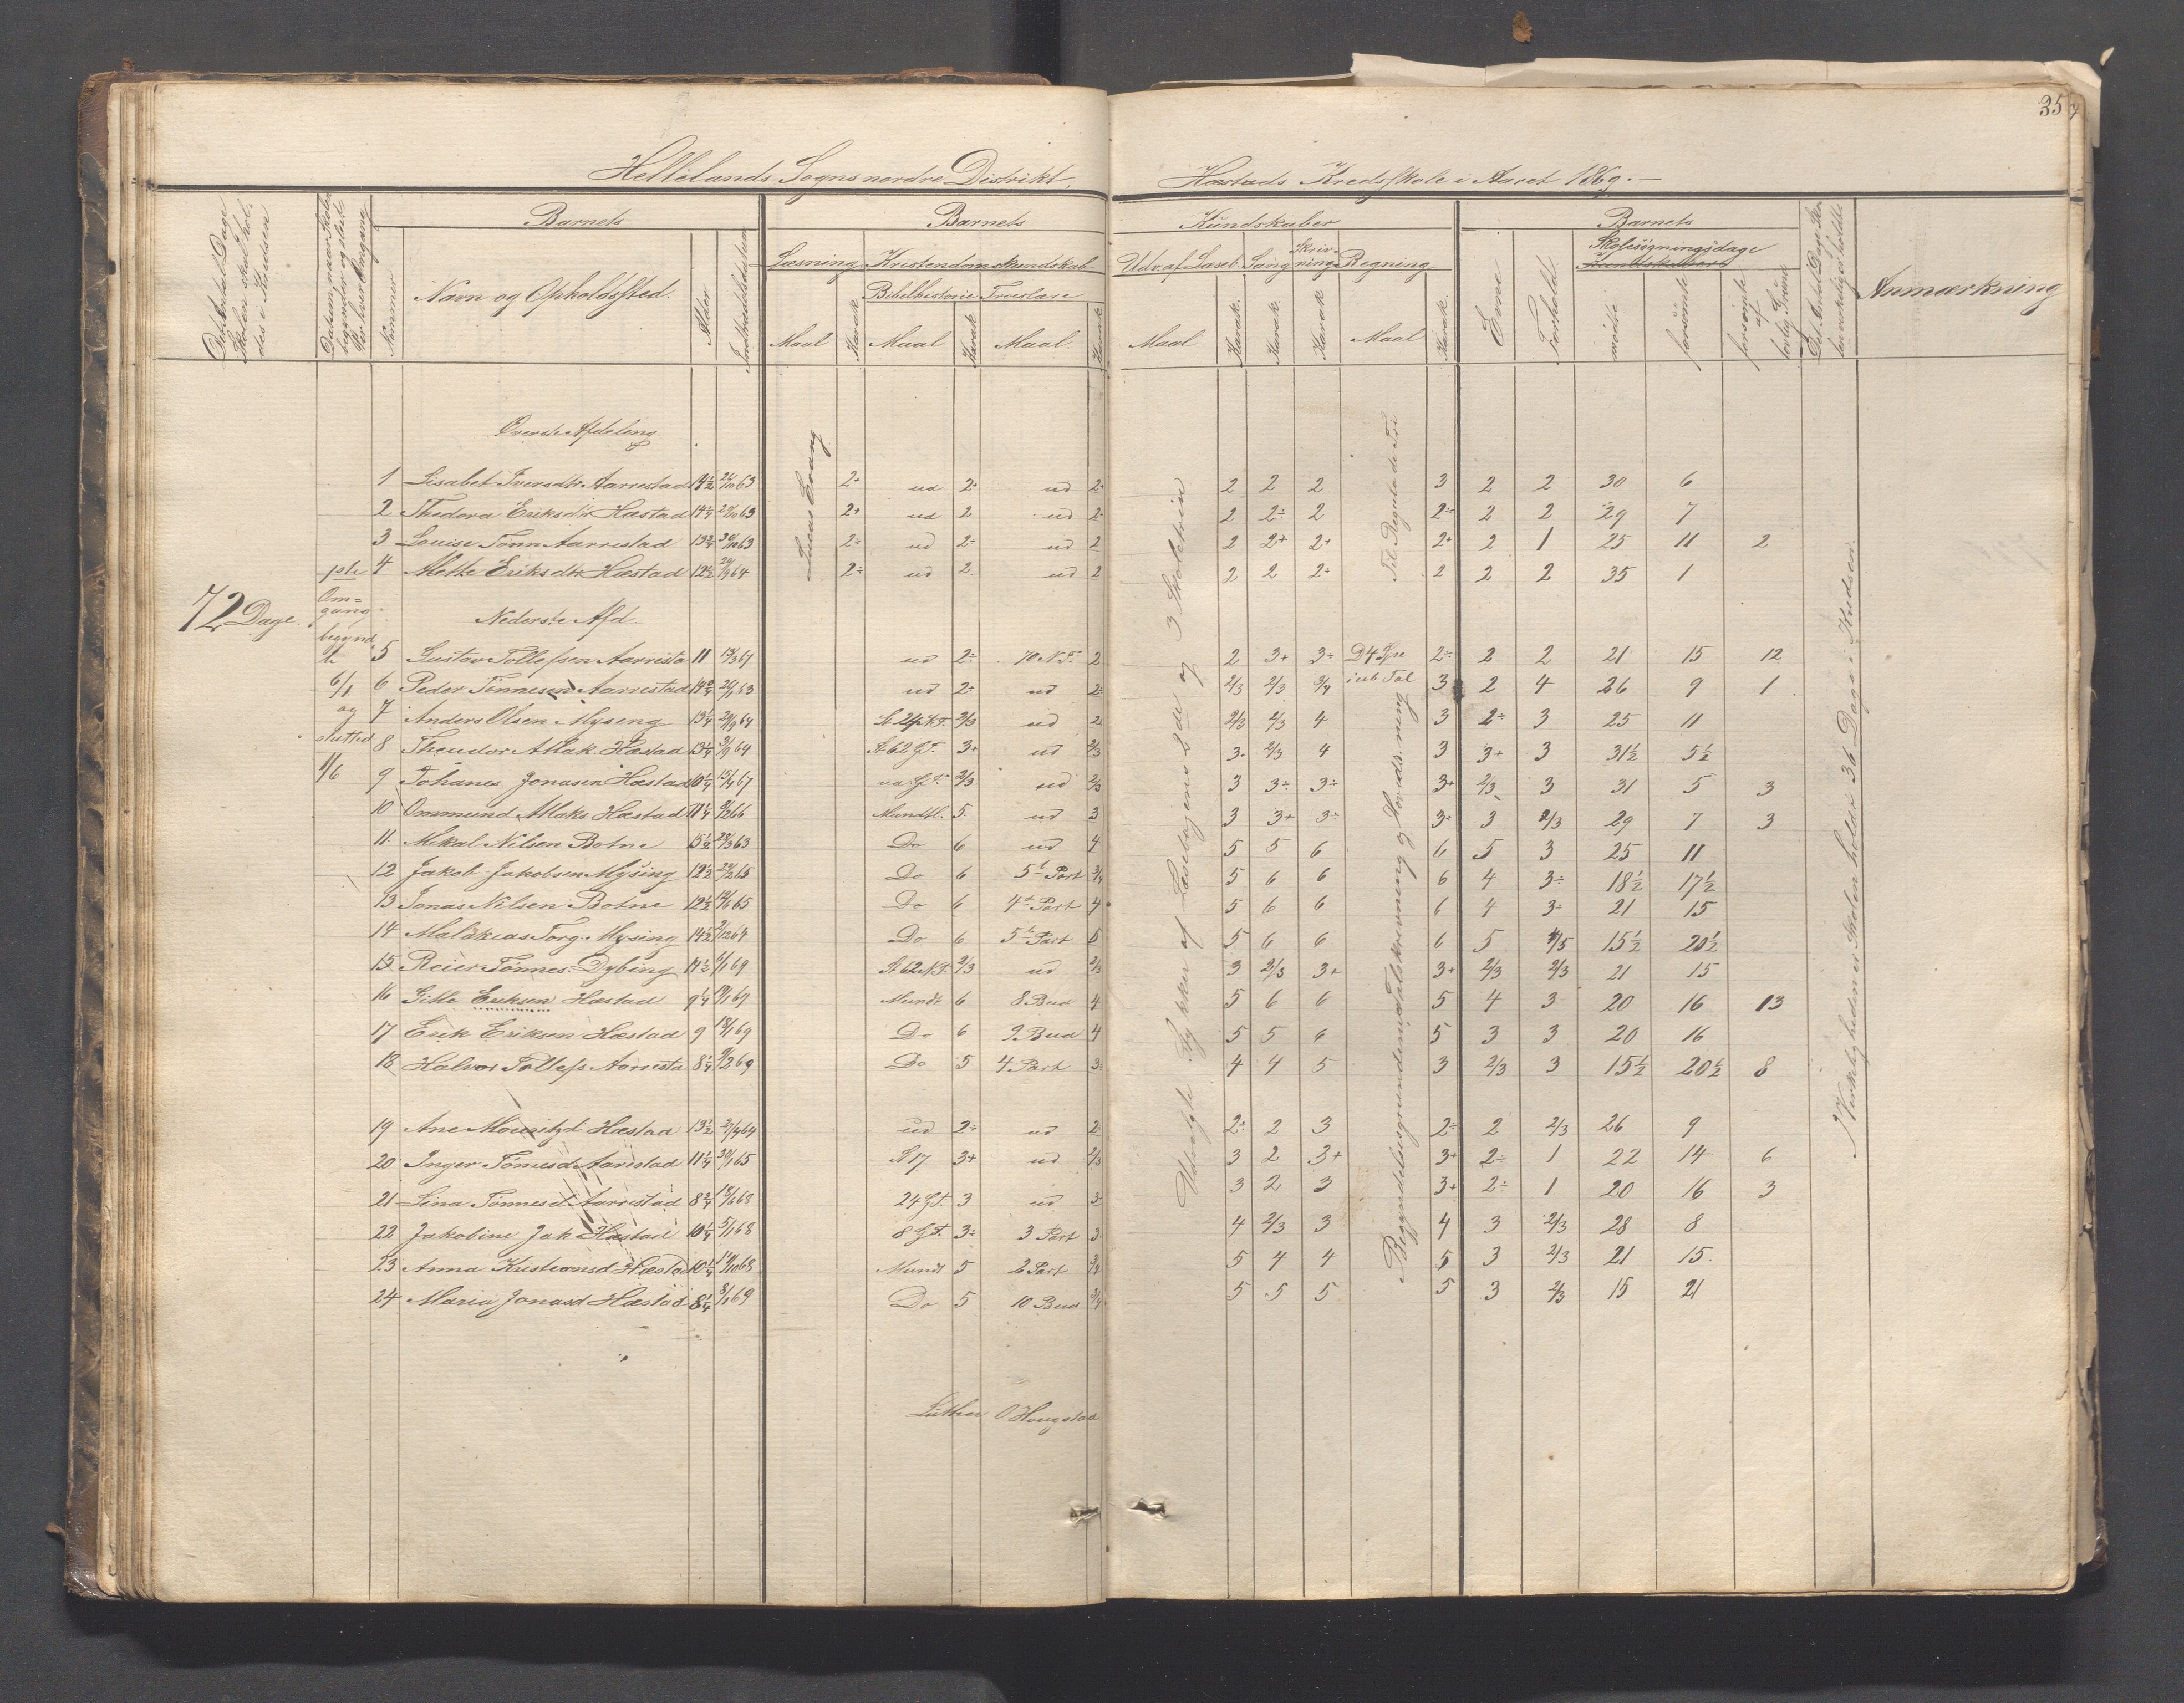 35
Hellelands Sogns nordre Distrikt,
Hæstads Kredsskole i Aaret 1869.
Barnets
Barnets
Kundskaber
Barnets
Læsning Kristendomskundskab
Udv. af Læseb. Sang Skrivning Regning
Skolesøgningsdage
Bibelhistorie Troeslære
Nummer
Navn og Opholdssted.
Alder
Indtrædelsesdatum
Maal Karak. Maal Karak. Maal. Karak.
Maal Karak. Karak. Karak Maal Karak.
Evne Forhold. mødte forsømte forsømte af lovlig Grund
Anmærkning
Øverste Afdeling
Lucas Evang
Til Regula de Tri
1 Lisabet Iversdtr Aarrestad 14½ 26/10 63 2+ ud 2+ ud 2+ 2 2 2 3 2 2 30 6
2 Thedora Eriksdtr Hæstad 14¼ 29/10 63 2+ ud 2 ud 2 2 2÷ 2 2÷ 2 2 29 7
3 Louise Tønn Aarrestad 13¾ 30/10 63 2÷ ud 2÷ ud 2 2 2+ 2+ 2+ 2 1 25 11 2
4 Mette Eriksdtr Hæstad 12½ 64 2÷ ud 2. ud 2 2 2 2÷ 2 2 2 35 1
72 Dage.
1ste Om=
gang
begynd
te
6/1
og
slutted
1/6
Nederste Afd.
5 Gustav Tollefsen Aarresta 11 13/3 67 ud 2÷ 70 N.T. 2 2 3+ 3÷ D 4 Spe 2÷ 2 2 21 15 12
6 Peder Tønnesen Aarrestad 14¾ 26/1 63 ud 2÷ ud 2÷ 2/3 2/3 3/4 i ub Tal 3 2 4 26 9 1
7 Anders Olsen Mysing 13¼ 29/9 64 2/3 ud 2 2/3 2/3 4 3 2÷ 3 25 11
8 Theudor Atlak. Hæstad 13¼ 3/9 64 St 62 G.T. 3+ ud 2/3 3. 2/3 4 3 3+ 3 31½ 5½
9 Johanes Jonasen Hæstad 10¼ 15/4 67 ud G.T. 2/3 ud 2/3 3 3÷ 3÷ 3+ 2/3 3 31 5 3
10 Ommund Atlaks Hæstad 11¼ 9/2 66 Mundtl. 5. ud 3 3 3+ 3÷ 3+ 3 2/3 29 7 3
11. Mikal Nilsen Botne 15½ 23/3 63 Do 6 ud 4 5 5 6 6 5 3 25 11
12 Jakob Jakobsen Mysing 12½ 24/2 65 Do 6 5t Part 3/4 5 6 6 6 4 3÷ 18½ 17½
13 Jonas Nilsen Botne 12½ 12/6 65 Do 6 4t Part 4 5 6 6 6 4 3÷ 21 15
14 Malakias Torg. Mysing 14½ 2/12 64 Do 6 5t Part 5 5 6 6 6 5 4/5 15½ 20½
15 Reier Tønnes. Dybing 11½ 6/1 69 St 62 N.T. 2/3 ud 2/3 3 2/3 3+ 3+ 2/3 2/3 21 15
16 Gitle Eriksen Hæstad 9¼ 19/1 69 Mundt 6 8 Bud 4 5 6 6 5 4 3 20 16 13
17 Erik Eriksen Hæstad 9 18/1 69 Do 6 9 Bud 4 5 5 6 5 3 3 20 16
18 Halvor Tollefs Aarresta 8¼ 9/2 69 Do 5 4 Part 3÷ 4 4 5 3 2/3 3 15½ 20½ 8
19 Ane Mouritzd Hæstad 13½ 27/4 64 ud 2÷ ud 2÷ 2÷ 2 3 2÷ 2 2/3 26 9
20 Inger Tønnesd Aarrestad 11¼ 30/1 65 St 17 3+ ud 2/3 3 2 3+ 3+ 2÷ 1 22 14 6
21 Lina Tønnesd Aarrestad 8¾ 18/6 68 24 G.T. 3 ud 3÷ 3 2 3 3+ 2÷ 1 20 16 3
22 Jakobine Jak Hæstad 10¼ 5/1 68 8 G.T. 3÷ 3 Part 3. 4 2/3 3 4 3 2/3 28 8
23 Anna Kristiansd Hæsta 10¼ 19/10 68 Mundt 5 2 Part 3/4 5 4 4 5 3 2/3 21 15.
24 Maria Jonasd Hæstad 8¼ 8/1 69 Do 5 10 Bud 3/4 5 5 5 5 3 2/3 15 21
Udvalgte Stykker af Læsebogens 2de og 3 Skoletrin
I Virkeligheden er Skolen holdt 36 Dage i Kredsen.
Luther O Hougstad